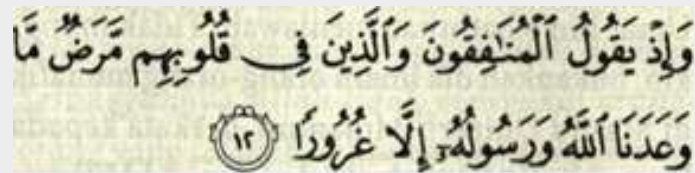 وَإِذْ يَقُولُ ٱلْمُنَٰفِقُونَ وَٱلَّذِينَ فِى قُلُوبِهِم مَّرَضٌ مَّا
وَعَدَنَا ٱللَّهُ وَرَسُولُهُۥٓ إِلَّا غُرُورًا ١٢